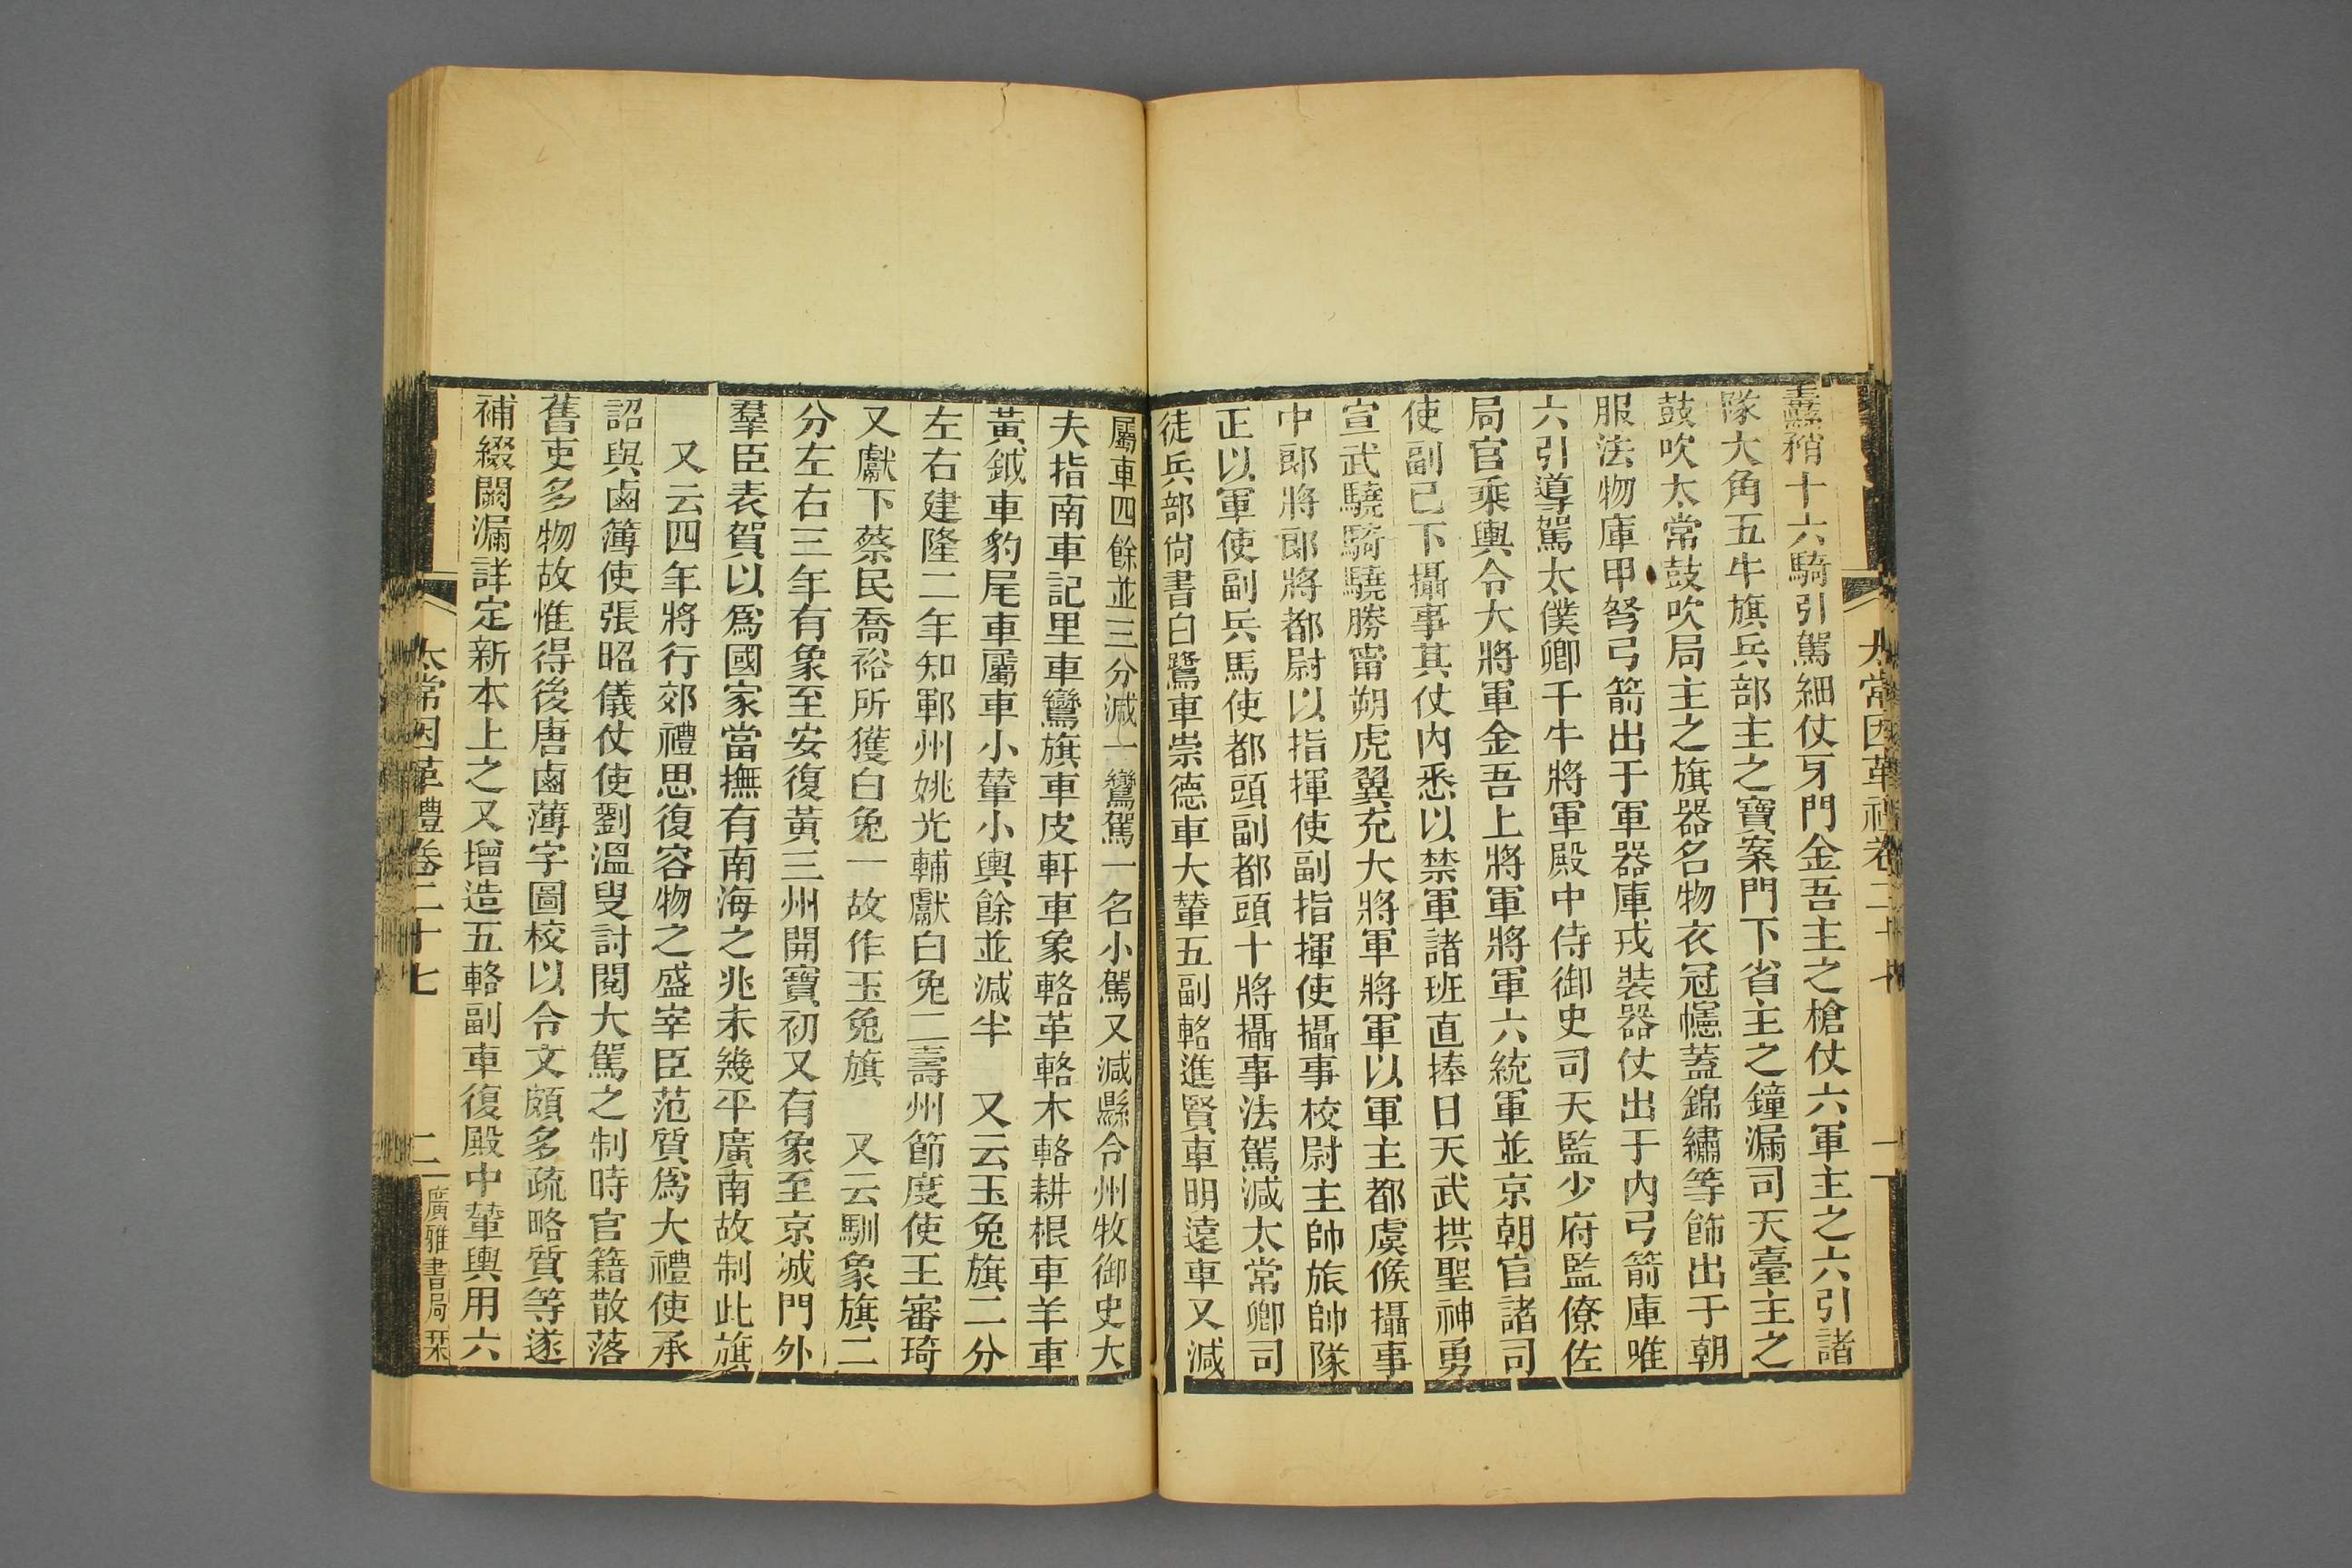 太常因革禮卷二十七
一
纛矟十六騎引駕細仗牙門金吾主之槍仗六軍主之六引諸
隊大角五牛旗兵部主之寶案門下省主之鐘漏司天臺主之
鼓吹太常鼓吹局主之旗器名物衣冠幰蓋錦繡等飾出于朝
服法物庫甲弩弓箭出于軍器庫戎裝器仗出于內弓箭庫唯
六引導駕太僕卿千牛將軍殿中侍御史司天監少府監僚佐
局官乘輿令大將軍金吾上將軍將軍六統軍並京朝官諸司
使副已下攝事其仗內悉以禁軍諸班直捧日天武拱聖神勇
宣武驍騎驍勝甯朔虎翼充大將軍將軍以軍主都虞候攝事
中郎將郎將都尉以指揮使副指揮使攝事校尉主帥旅帥隊
正以軍使副兵馬使都頭副都頭十將攝事法駕減太常卿司
徒兵部尚書白鷺車崇德車大輦五副輅進賢車明遠車又減
屬車四餘並三分減一鸞駕一名小駕又減縣令州牧御史大
夫指南車記里車鸞旗車皮軒車象輅革輅木輅耕根車羊車
黃鉞車豹尾車屬車小輦小輿餘並減半　又云玉兔旗二分
左右建隆二年知鄆州姚光輔獻白兔二壽州節度使王審琦
又獻下蔡民喬裕所獲白兔一故作玉兔旗　又云馴象旗二
分左右三年有象至安復黃三州開寶初又有象至京減門外
羣臣表賀以爲國家當撫有南海之兆未幾平廣南故制此旗
又云四年將行郊禮思復容物之盛宰臣范質爲大禮使承
詔與鹵簿使張昭儀仗使劉溫叟討閱大駕之制時官籍散落
舊吏多物故惟得後唐鹵薄字圖校以令文頗多疏略質等遂
補綴闕漏詳定新本上之又增造五輅副車復殿中輦輿用六
太常因革禮卷二十七
二
廣雅書局栞